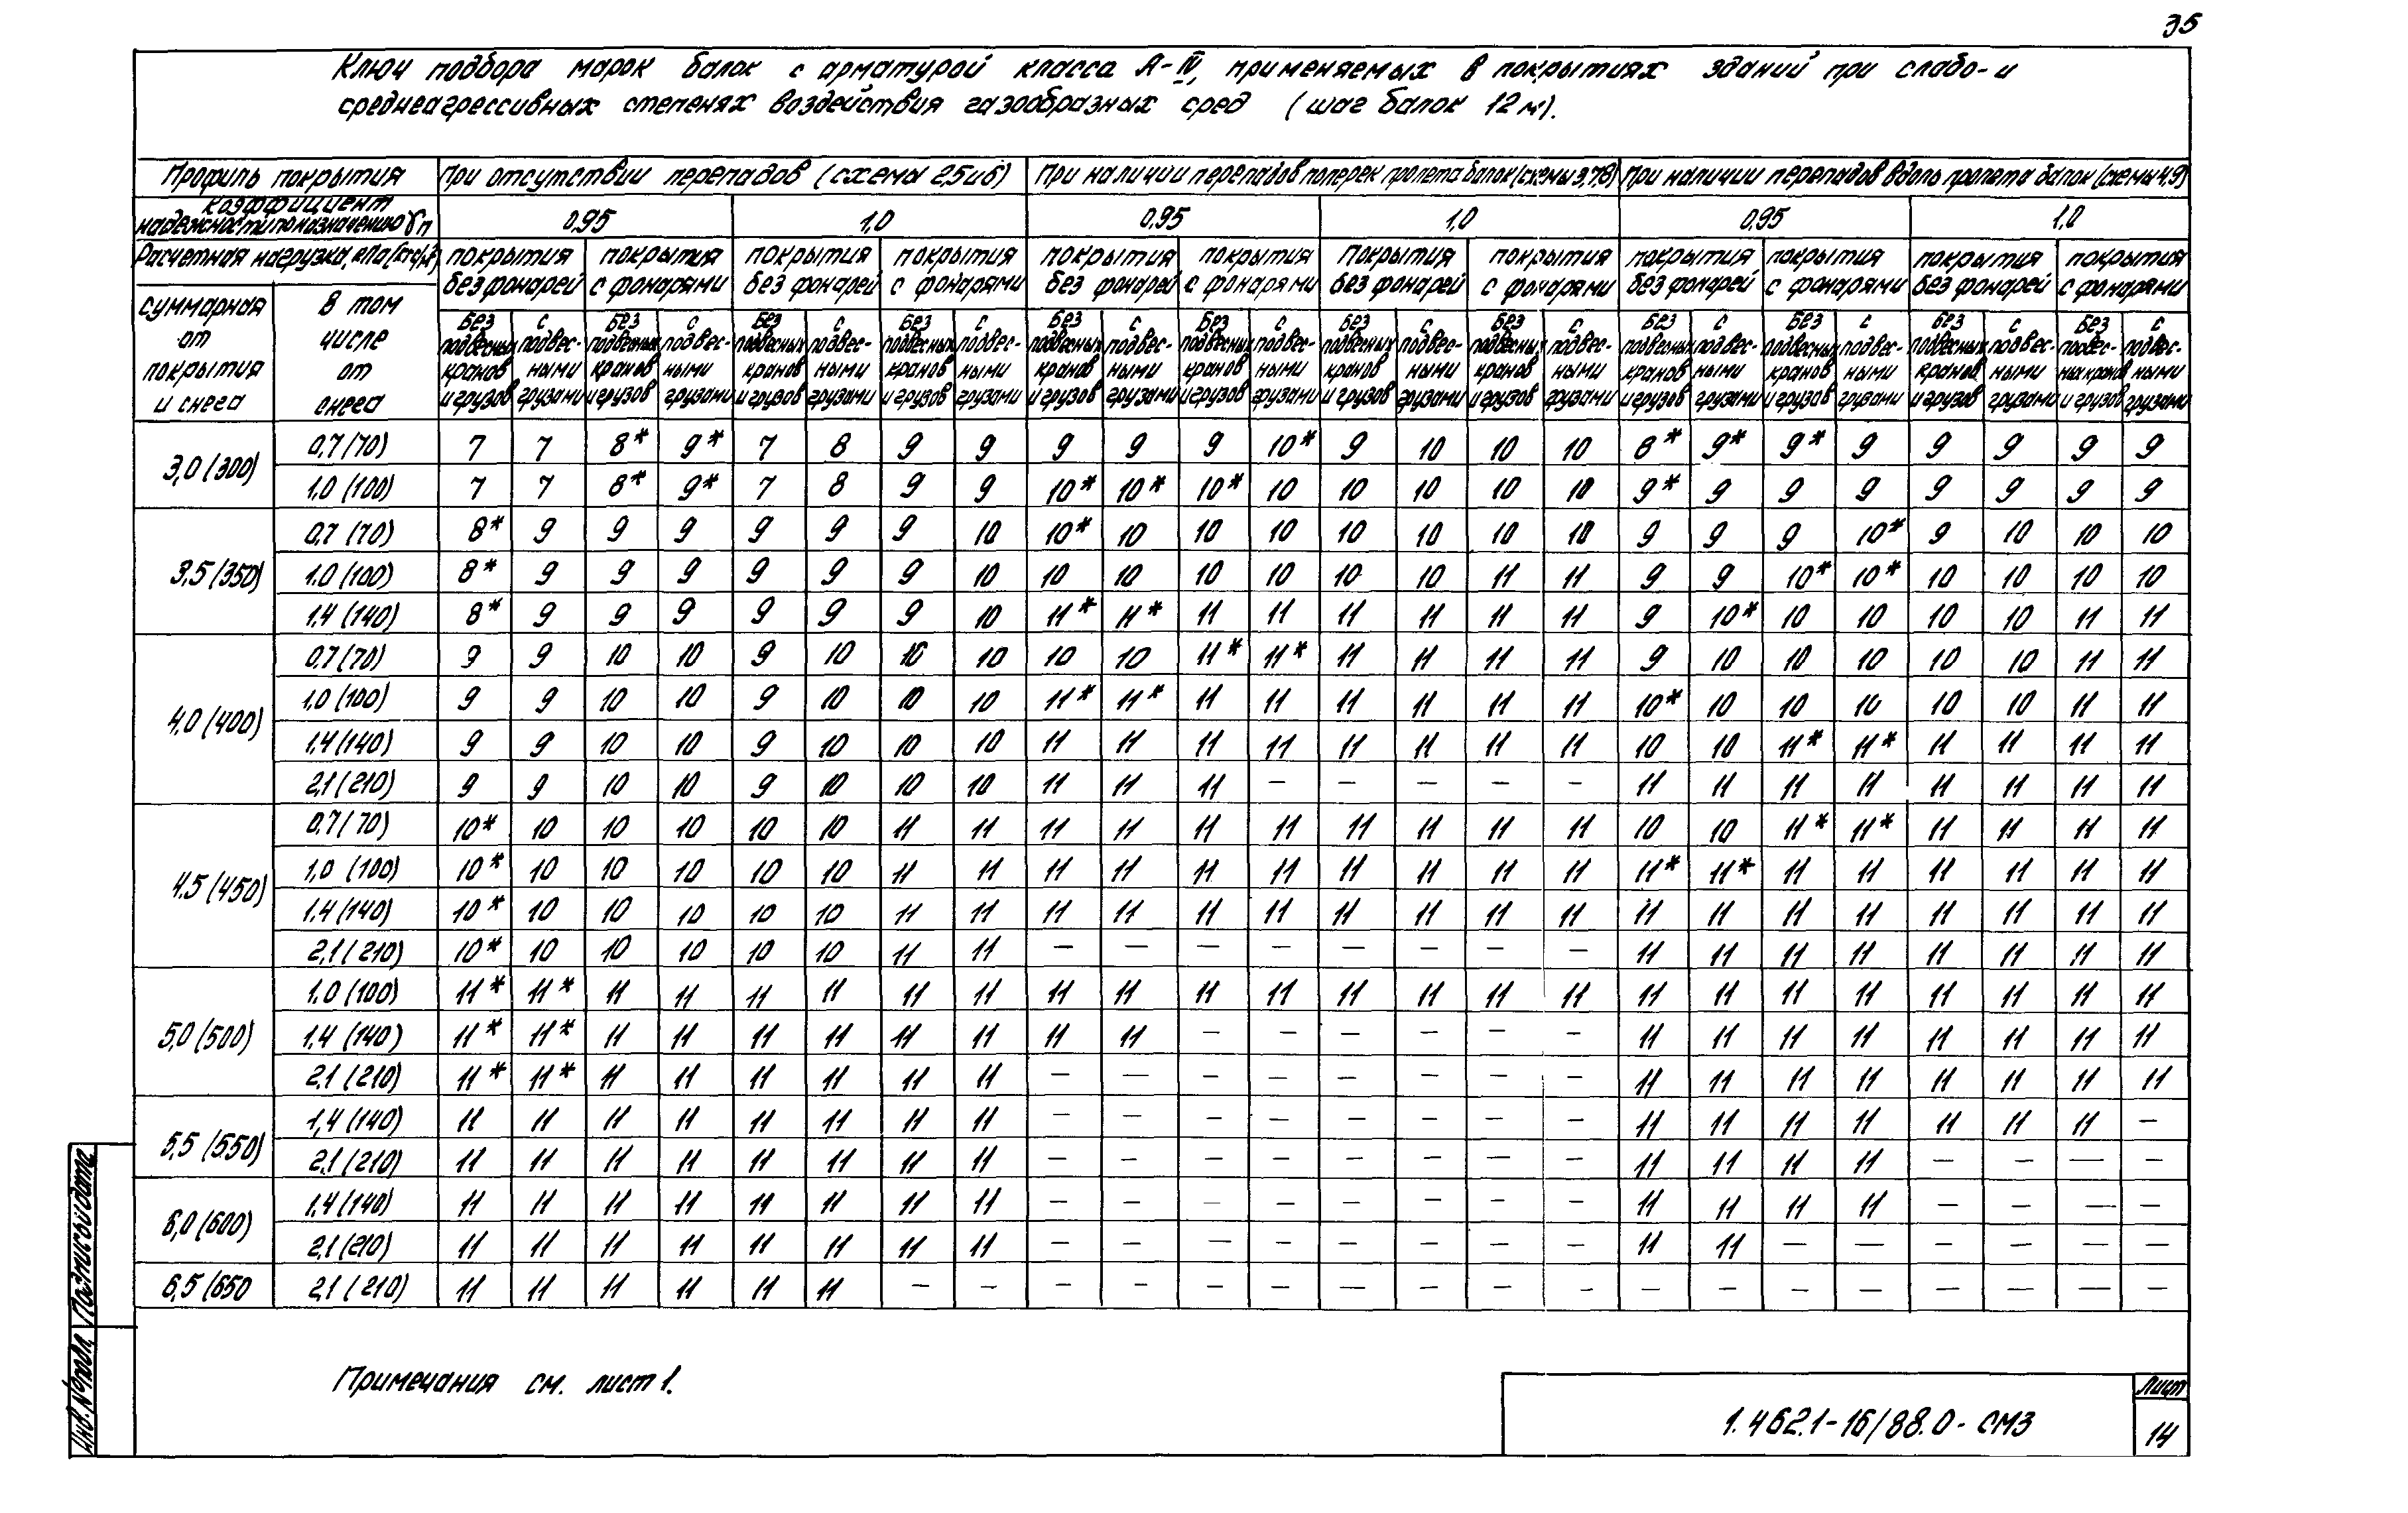 35
Ключ подбора марок балок с арматурой класса А-IV, применяемых в покрытиях зданий при слабо- и
среднеагрессивных степенях воздействия газообразных сред (шаг балок 12м).
Профиль покрытия При отсутствии перепадов (схемы 2,5 и 6) При наличии перепадов поперек пролета балок (схемы 3,7,8) При наличии перепадов вдоль пролета балок (схемы 4,9)
Коэффициент
надежности по назначению γп 0,95 1,0 0,95 1,0 0,95 1,0
Расчетная нагрузка, кПа (кгс/м²) покрытия покрытия покрытия покрытия покрытия покрытия покрытия покрытия покрытия покрытия покрытия покрытия
без фонарей с фонарями без фонарей с фонарями без фонарей с фонарями без фонарей с фонарями без фонарей с фонарями без фонарей с фонарями
суммарная от покрытия и снега
В том числе от снега
Без подвесных кранов и грузов
с подвесными грузами
Без подвесных кранов и грузов
с подвесными грузами
Без подвесных кранов и грузов
с подвесными грузами
Без подвесных кранов и грузов
с подвесными грузами
Без подвесных кранов и грузов
с подвесными грузами
Без подвесных кранов и грузов
с подвесными грузами
Без подвесных кранов и грузов
с подвесными грузами
Без подвесных кранов и грузов
с подвесными грузами
Без подвесных кранов и грузов
с подвесными грузами
Без подвесных кранов и грузов
с подвесными грузами
Без подвесных кранов и грузов
с подвесными грузами
Без подвес-ных кранов и грузов
с подвес-ными грузами
3,0 (300) 0,7 (70) 7 7 8* 9* 7 8 9 9 9 9 9 10* 9 10 10 10 8* 9* 9* 9 9 9 9 9
1,0 (100) 7 7 8* 9* 7 8 9 9 10* 10* 10* 10 10 10 10 10 9* 9 9 9 9 9 9 9
3,5 (350) 0,7 (70) 8* 9 9 9 9 9 9 10 10* 10 10 10 10 10 10 10 9 9 9 10* 9 10 10 10
1,0 (100) 8* 9 9 9 9 9 9 10 10 10 10 10 10 10 11 11 9 9 10* 10* 10 10 10 10
1,4 (140) 8* 9 9 9 9 9 9 10 11* 11* 11 11 11 11 11 11 9 10* 10 10 10 10 11 11
4,0 (400) 0,7 (70) 9 9 10 10 9 10 10 10 10 10 11* 11* 11 11 11 11 9 10 10 10 10 10 11 11
1,0 (100) 9 9 10 10 9 10 10 10 11* 11* 11 11 11 11 11 11 10* 10 10 10 10 10 11 11
1,4 (140) 9 9 10 10 9 10 10 10 11 11 11 11 11 11 11 11 10 10 11* 11* 11 11 11 11
2,1 (210) 9 9 10 10 9 10 10 10 11 11 11 — — — — — 11 11 11 11 11 11 11 11
4,5 (450) 0,7 (70) 10* 10 10 10 10 10 11 11 11 11 11 11 11 11 11 11 10 10 11* 11* 11 11 11 11
1,0 (100) 10* 10 10 10 10 10 11 11 11 11 11 11 11 11 11 11 11* 11* 11 11 11 11 11 11
1,4 (140) 10* 10 10 10 10 10 11 11 11 11 11 11 11 11 11 11 11 11 11 11 11 11 11 11
2,1 (210) 10* 10 10 10 10 10 11 11 — — — — — — — — 11 11 11 11 11 11 11 11
5,0 (500) 1,0 (100) 11* 11* 11 11 11 11 11 11 11 11 11 11 11 11 11 11 11 11 11 11 11 11 11 11
1,4 (140) 11* 11* 11 11 11 11 11 11 11 11 — — — — — — 11 11 11 11 11 11 11 11
2,1 (210) 11* 11* 11 11 11 11 11 11 — — — — — — — — 11 11 11 11 11 11 11 11
5,5 (550) 1,4 (140) 11 11 11 11 11 11 11 11 — — — — — — — — 11 11 11 11 11 11 11 —
2,1 (210) 11 11 11 11 11 11 11 11 — — — — — — — — 11 11 11 11 — — — —
6,0 (600) 1,4 (140) 11 11 11 11 11 11 11 11 — — — — — — — — 11 11 11 11 — — — —
2,1 (210) 11 11 11 11 11 11 11 11 — — — — — — — — 11 11 — — — — — —
6,5 (650 2,1 (210) 11 11 11 11 11 11 — — — — — — — — — — — — — — — — — —
Примечания см. лист 1.
1.462.1-16/88.0-СМ3
Лист
14
Инв. № подл. Подпись и дата